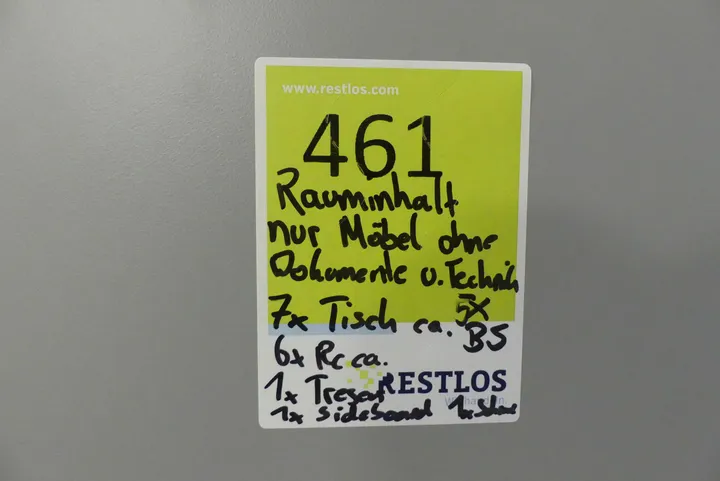 www.restlos.com
461
Rauminhalt
nur Möbel ohne
Dokumente u. Technik
7x Tisch ca. 5x
BS
6x Rc ca.
1x Tresen
RESTLOS
1x Sideboard 1x